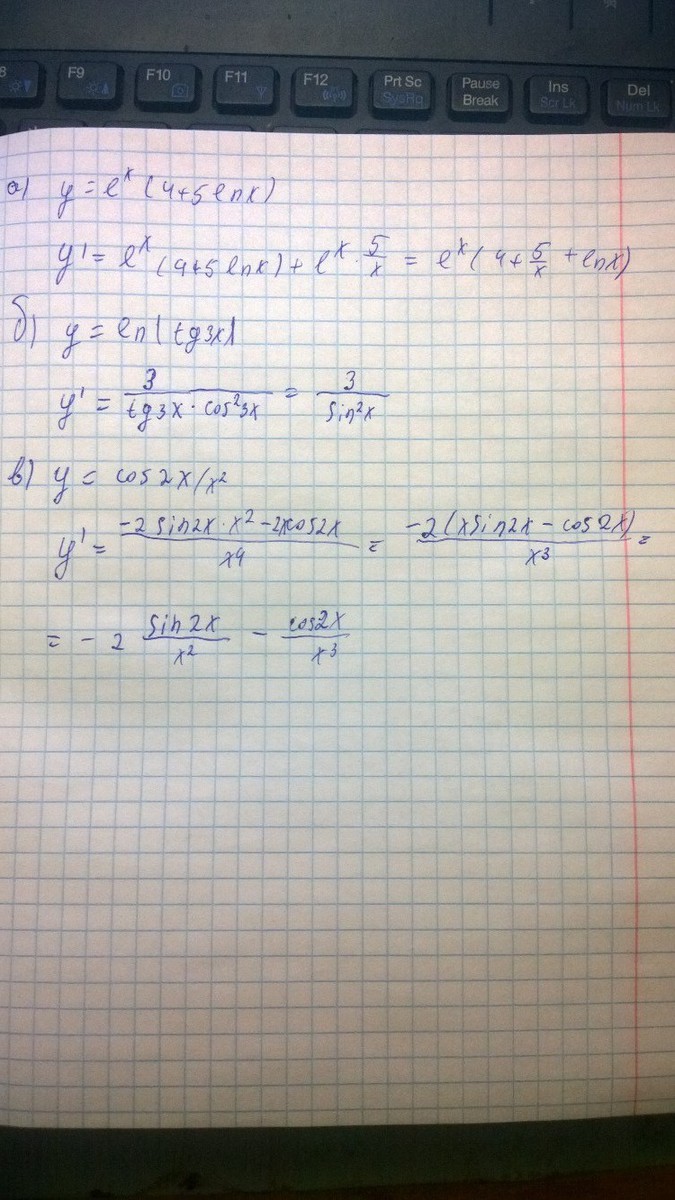 F9 F10 F11 F12 Prt Sc SysRq Pause Break Ins Scr Lk Del Num Lk
а) y = e^x (4+5 ln x)
y' = e^x (4+5 ln x) + e^x · 5/x = e^x (4 + 5/x + ln x)
б) y = ln(tg3x)
y' = 3/(tg3x · cos²3x) = 3/(sin²x)
в) y = cos2x/x²
y' = (-2 sin2x · x² - 2xcos2x)/x⁴ = (-2(xsin2x - cos2x))/x³ =
= - 2 sin2x/x² - cos2x/x³